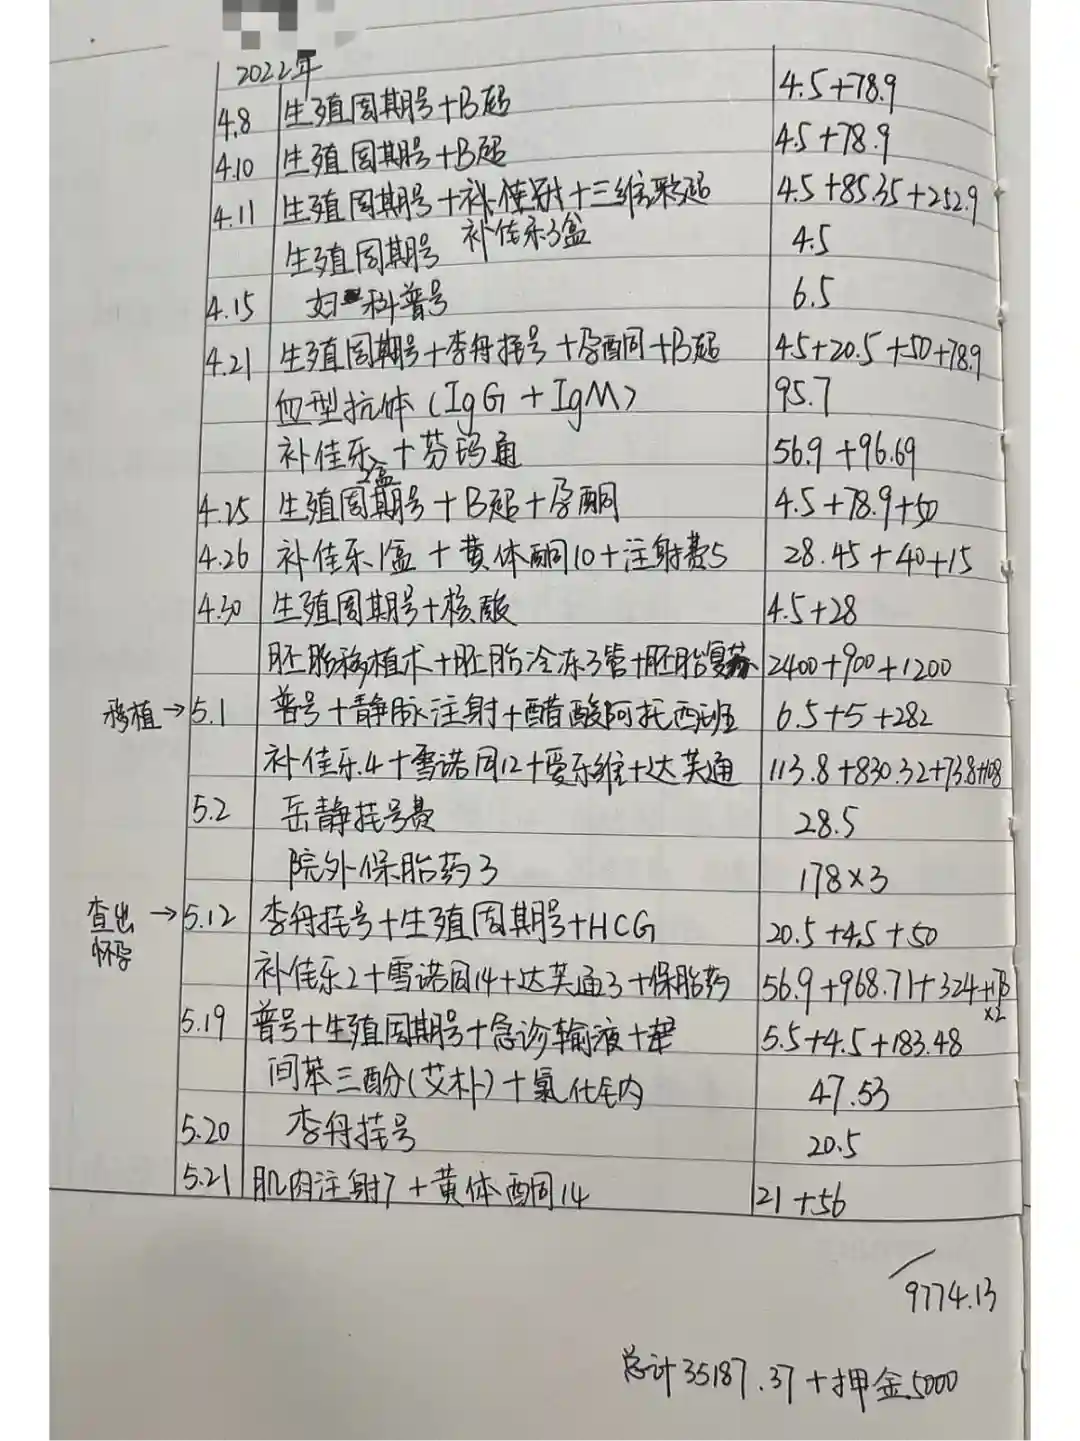 2022年
4.8 生殖周期号+B超 4.5+78.9
4.10 生殖周期号+B超 4.5+78.9
4.11 生殖周期号+补佳乐+三维彩超 4.5+85.35+252.9
补佳乐3盒
生殖周期号 4.5
4.15 妇科普号 6.5
4.21 生殖周期号+李舟挂号+孕酮+B超 4.5+20.5+50+78.9
血型抗体(IgG+IgM) 95.7
补佳乐+芬玛通 56.9+96.69
2盒
4.25 生殖周期号+B超+孕酮 4.5+78.9+50
4.26 补佳乐1盒+黄体酮10+注射费5 28.45+40+15
4.30 生殖周期号+核酸 4.5+28
胚胎移植术+胚胎冷冻3管+胚胎复苏 2400+900+1200
移植→5.1 普号+静脉注射+醋酸阿托西班 6.5+5+282
补佳乐4+雪诺同12+爱乐维+达芙通 113.8+830.32+73.8+108
5.2 岳静挂号费 28.5
院外保胎药3 178×3
查出怀孕→5.12 李舟挂号+生殖周期号+HCG 20.5+4.5+50
补佳乐2+雪诺同14+达芙通3+保胎药 56.9+968.71+324+178×2
5.19 普号+生殖周期号+急诊输液+ 5.5+4.5+183.48
间苯三酚(艾朴)+氯化钠 47.53
5.20 李舟挂号 20.5
5.21 肌肉注射7+黄体酮14 21+56
9774.13
总计35187.37+押金5000